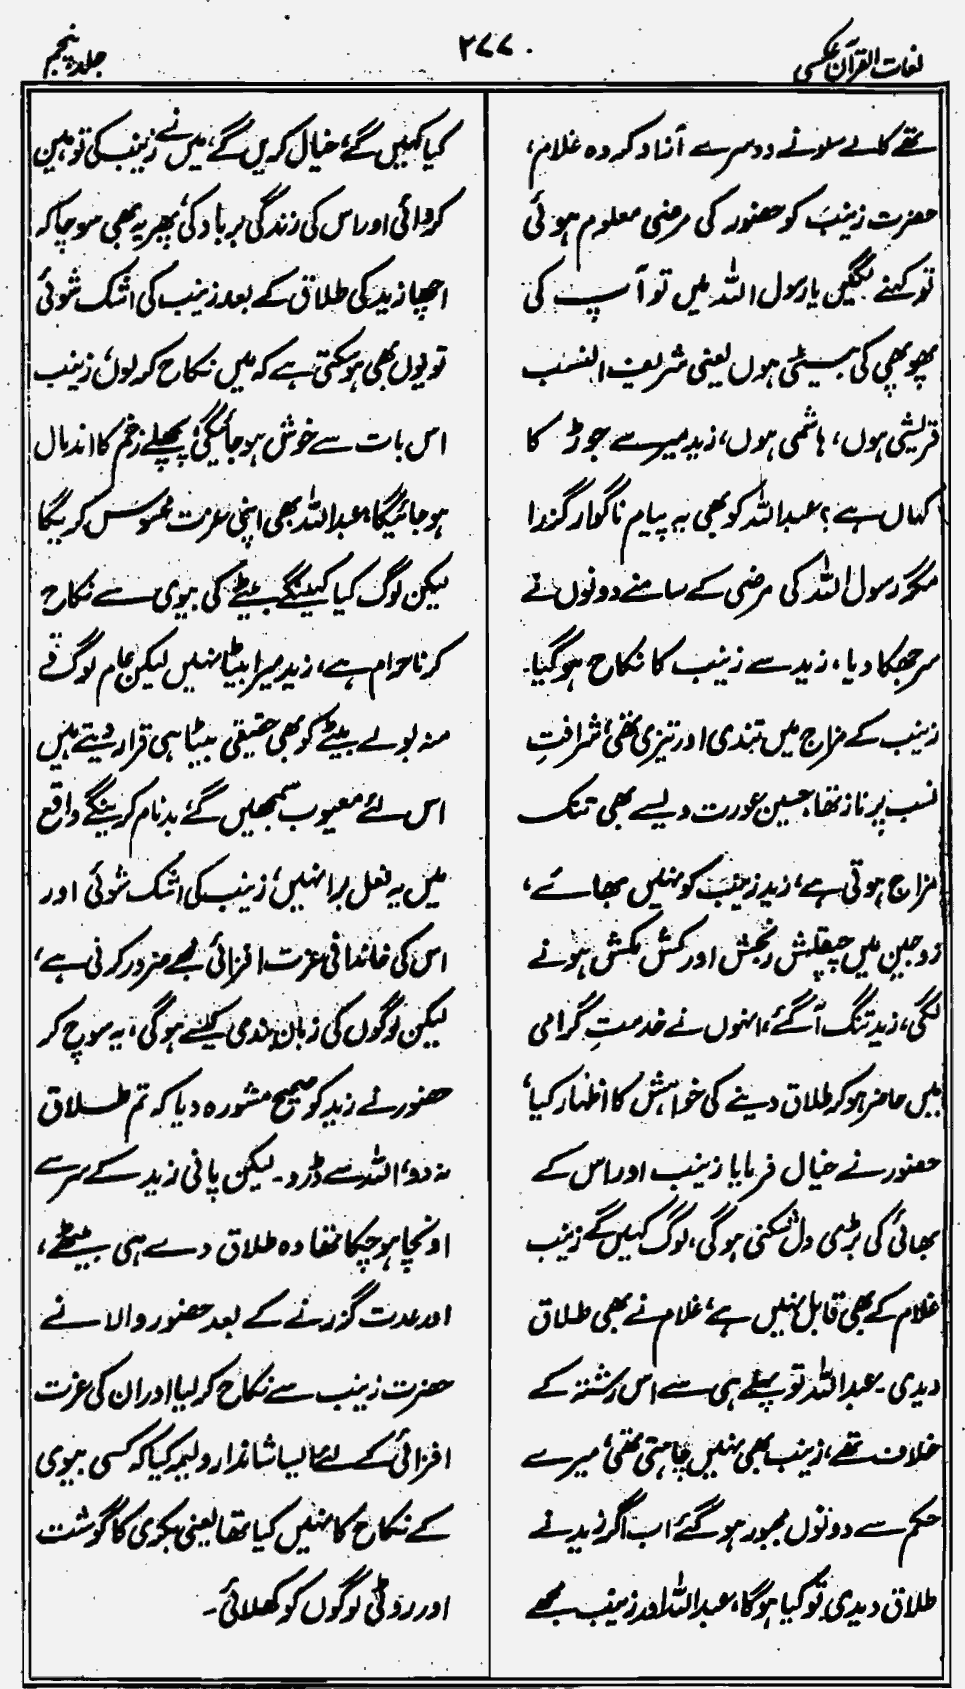 لغات القرآن عکسی
۲۷۷
جلد پنجم
تھے کالے سلونے دوسرے آزاد کردہ غلام،
حضرت زینب کو حضور کی مرضی معلوم ہوئی
تو کہنے لگیں یا رسول اللہ میں تو آپ کی
پھوپھی کی بیٹی ہوں یعنی شریف النسب
قریشی ہوں، ہاشمی ہوں، زید میرے جوڑ کا
کہاں ہے؟ عبداللہ کو بھی یہ پیام ناگوار گزرا
مگر رسول اللہ کی مرضی کے سامنے دونوں نے
سر جھکا دیا، زید سے زینب کا نکاح ہو گیا۔
زینب کے مزاج میں تندی اور تیزی تھی، شرافتِ
نسب پر ناز تھا، حسین عورت ویسے بھی تنک
مزاج ہوتی ہے، زید زینب کو نہیں بھائے،
زوجین میں چپقلش رنجش اور کش مکش ہونے
لگی، زید تنگ آ گئے، انہوں نے خدمتِ گرامی
میں حاضر ہو کر طلاق دینے کی خواہش کا اظہار کیا،
حضور نے خیال فرمایا زینب اور اس کے
بھائی کی بڑی دل شکنی ہوگی، لوگ کہیں گے زینب
غلام کے بھی قابل نہیں ہے، غلام نے بھی طلاق
دیدی۔ عبداللہ تو پہلے ہی سے اس رشتہ کے
خلاف تھے، زینب بھی نہیں چاہتی تھی، میرے
حکم سے دونوں مجبور ہو گئے اب اگر زید نے
طلاق دیدی تو کیا ہوگا، عبداللہ اور زینب مجھے
کیا کہیں گے، خیال کریں گے، میں نے زینب کی توہین
کروائی اور اس کی زندگی برباد کی، پھر یہ بھی سوچا کہ
اچھا زید کی طلاق کے بعد زینب کی اشک شوئی
تو یوں بھی ہو سکتی ہے کہ میں نکاح کر لوں، زینب
اس بات سے خوش ہو جائیگی، پچھلے زخم کا اندمال
ہو جائیگا، عبداللہ بھی اپنی عزت محسوس کریگا
لیکن لوگ کیا کہینگے بیٹے کی بیوی سے نکاح
کرنا حرام ہے، زید میرا بیٹا نہیں لیکن عام لوگ تو
منہ بولے بیٹے کو بھی حقیقی بیٹا ہی قرار دیتے ہیں
اس لئے معیوب سمجھیں گے، بدنام کرینگے واقع
میں یہ فعل برا نہیں، زینب کی اشک شوئی اور
اس کی خاندانی عزت افزائی مجھے ضرور کرنی ہے،
لیکن لوگوں کی زبان بندی کیسے ہوگی، یہ سوچ کر
حضور نے زید کو صحیح مشورہ دیا کہ تم طلاق
نہ دو، اللہ سے ڈرو۔ لیکن پانی زید کے سر سے
اونچا ہو چکا تھا وہ طلاق دے ہی بیٹھے،
اور عدت گزرنے کے بعد حضور والا نے
حضرت زینب سے نکاح کر لیا اور ان کی عزت
افزائی کے لئے ایسا شاندار ولیمہ کیا کہ کسی بیوی
کے نکاح کا نہیں کیا تھا یعنی بکری کا گوشت
اور روٹی لوگوں کو کھلائی۔